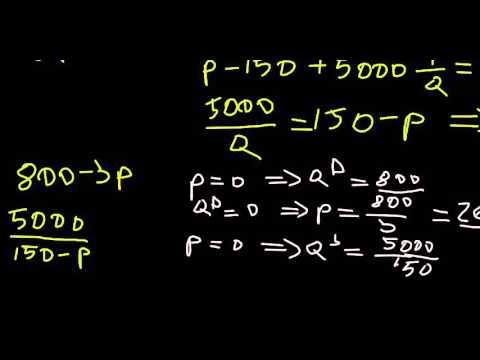 P-150+5000 1/Q =
5000/Q = 150-P =
800-3P
5000/150-P
P=0 ⟹ Q^D = 800
Q^D=0 ⟹ P = 800/3 = 26
P=0 ⟹ Q^S = 5000/150